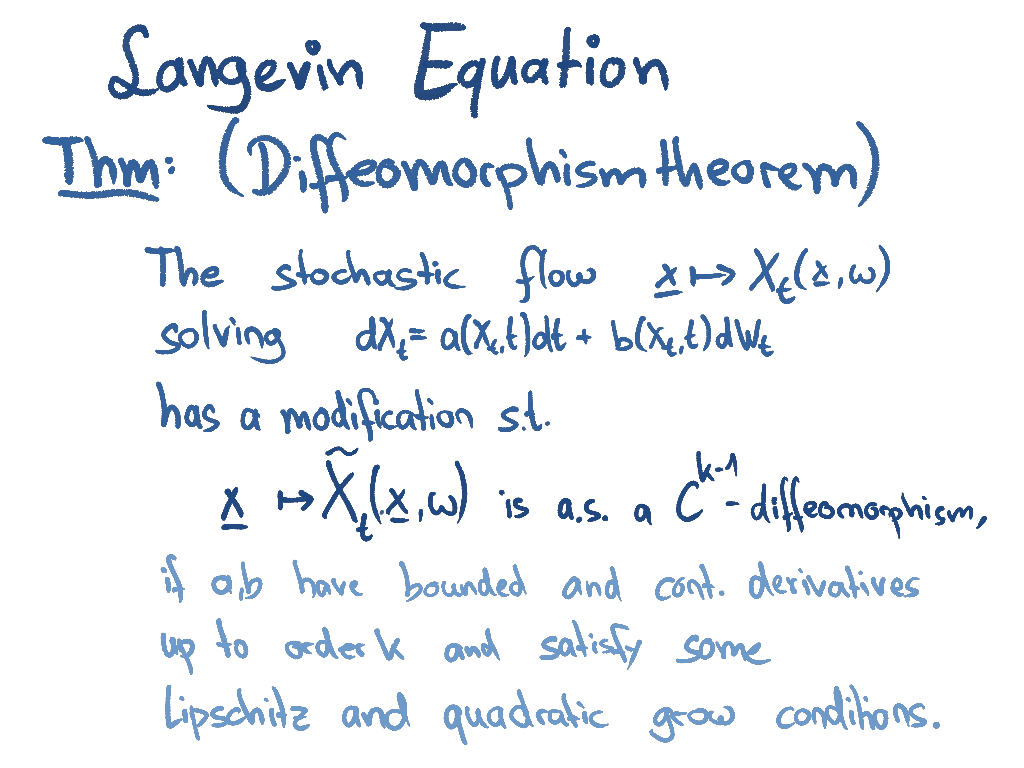 Langevin Equation
Thm: (Diffeomorphism theorem)
The stochastic flow x ↦ X_t(x,ω)
solving dX_t = a(X_t,t)dt + b(X_t,t)dW_t
has a modification s.t.
x ↦ X̃_t(x,ω) is a.s. a C^{k-1}-diffeomorphism,
if a,b have bounded and cont. derivatives
up to order k and satisfy some
Lipschitz and quadratic grow conditions.